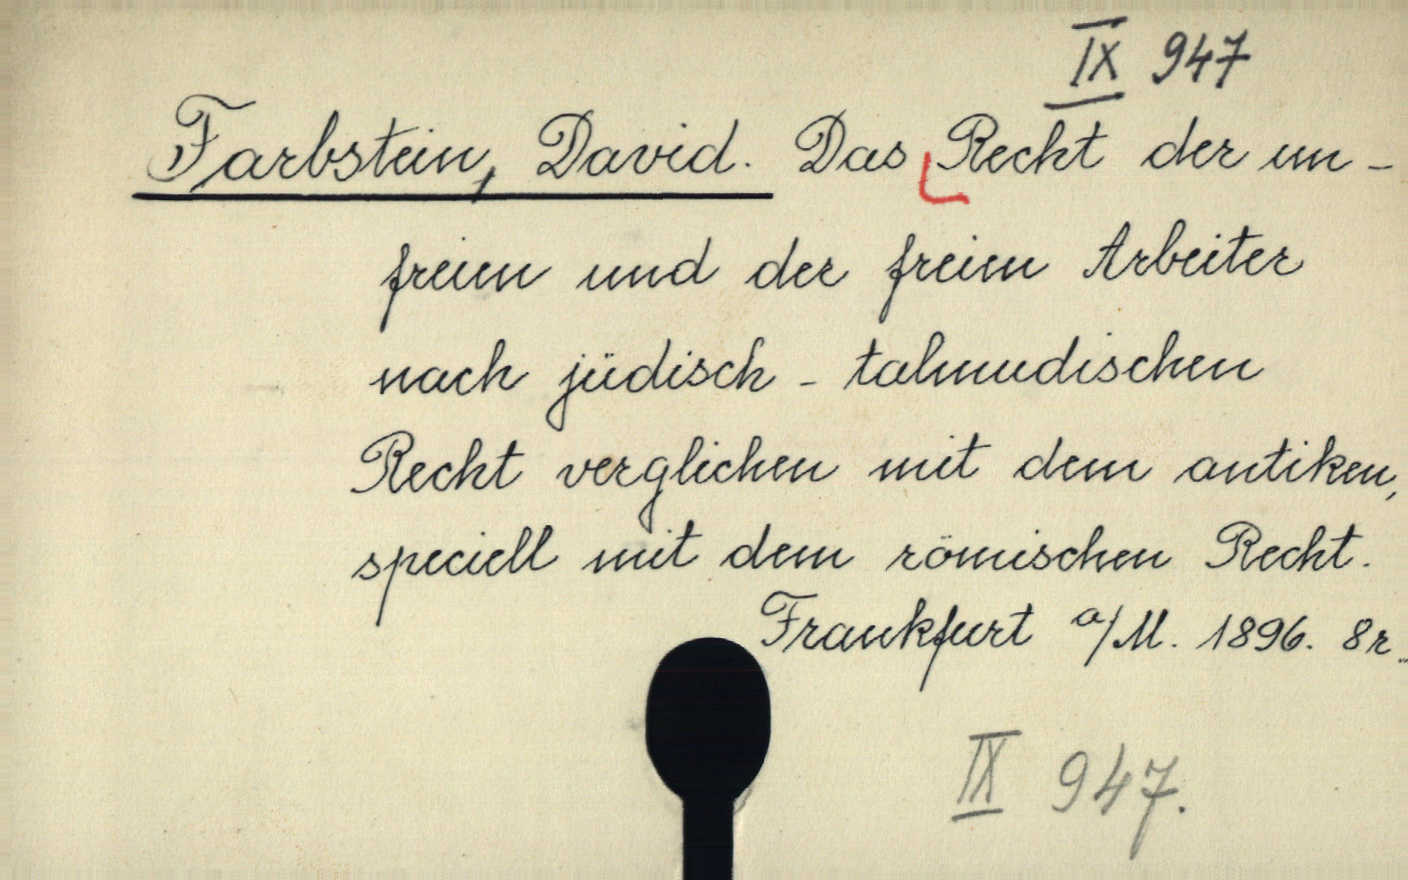 IX 947
Farbstein, David. Das Recht der un-
freien und der freien Arbeiter
nach jüdisch-talmudischen
Recht verglichen mit dem antiken,
speciell mit dem römischen Recht.
Frankfurt a/M. 1896. 8r.
IX 947.